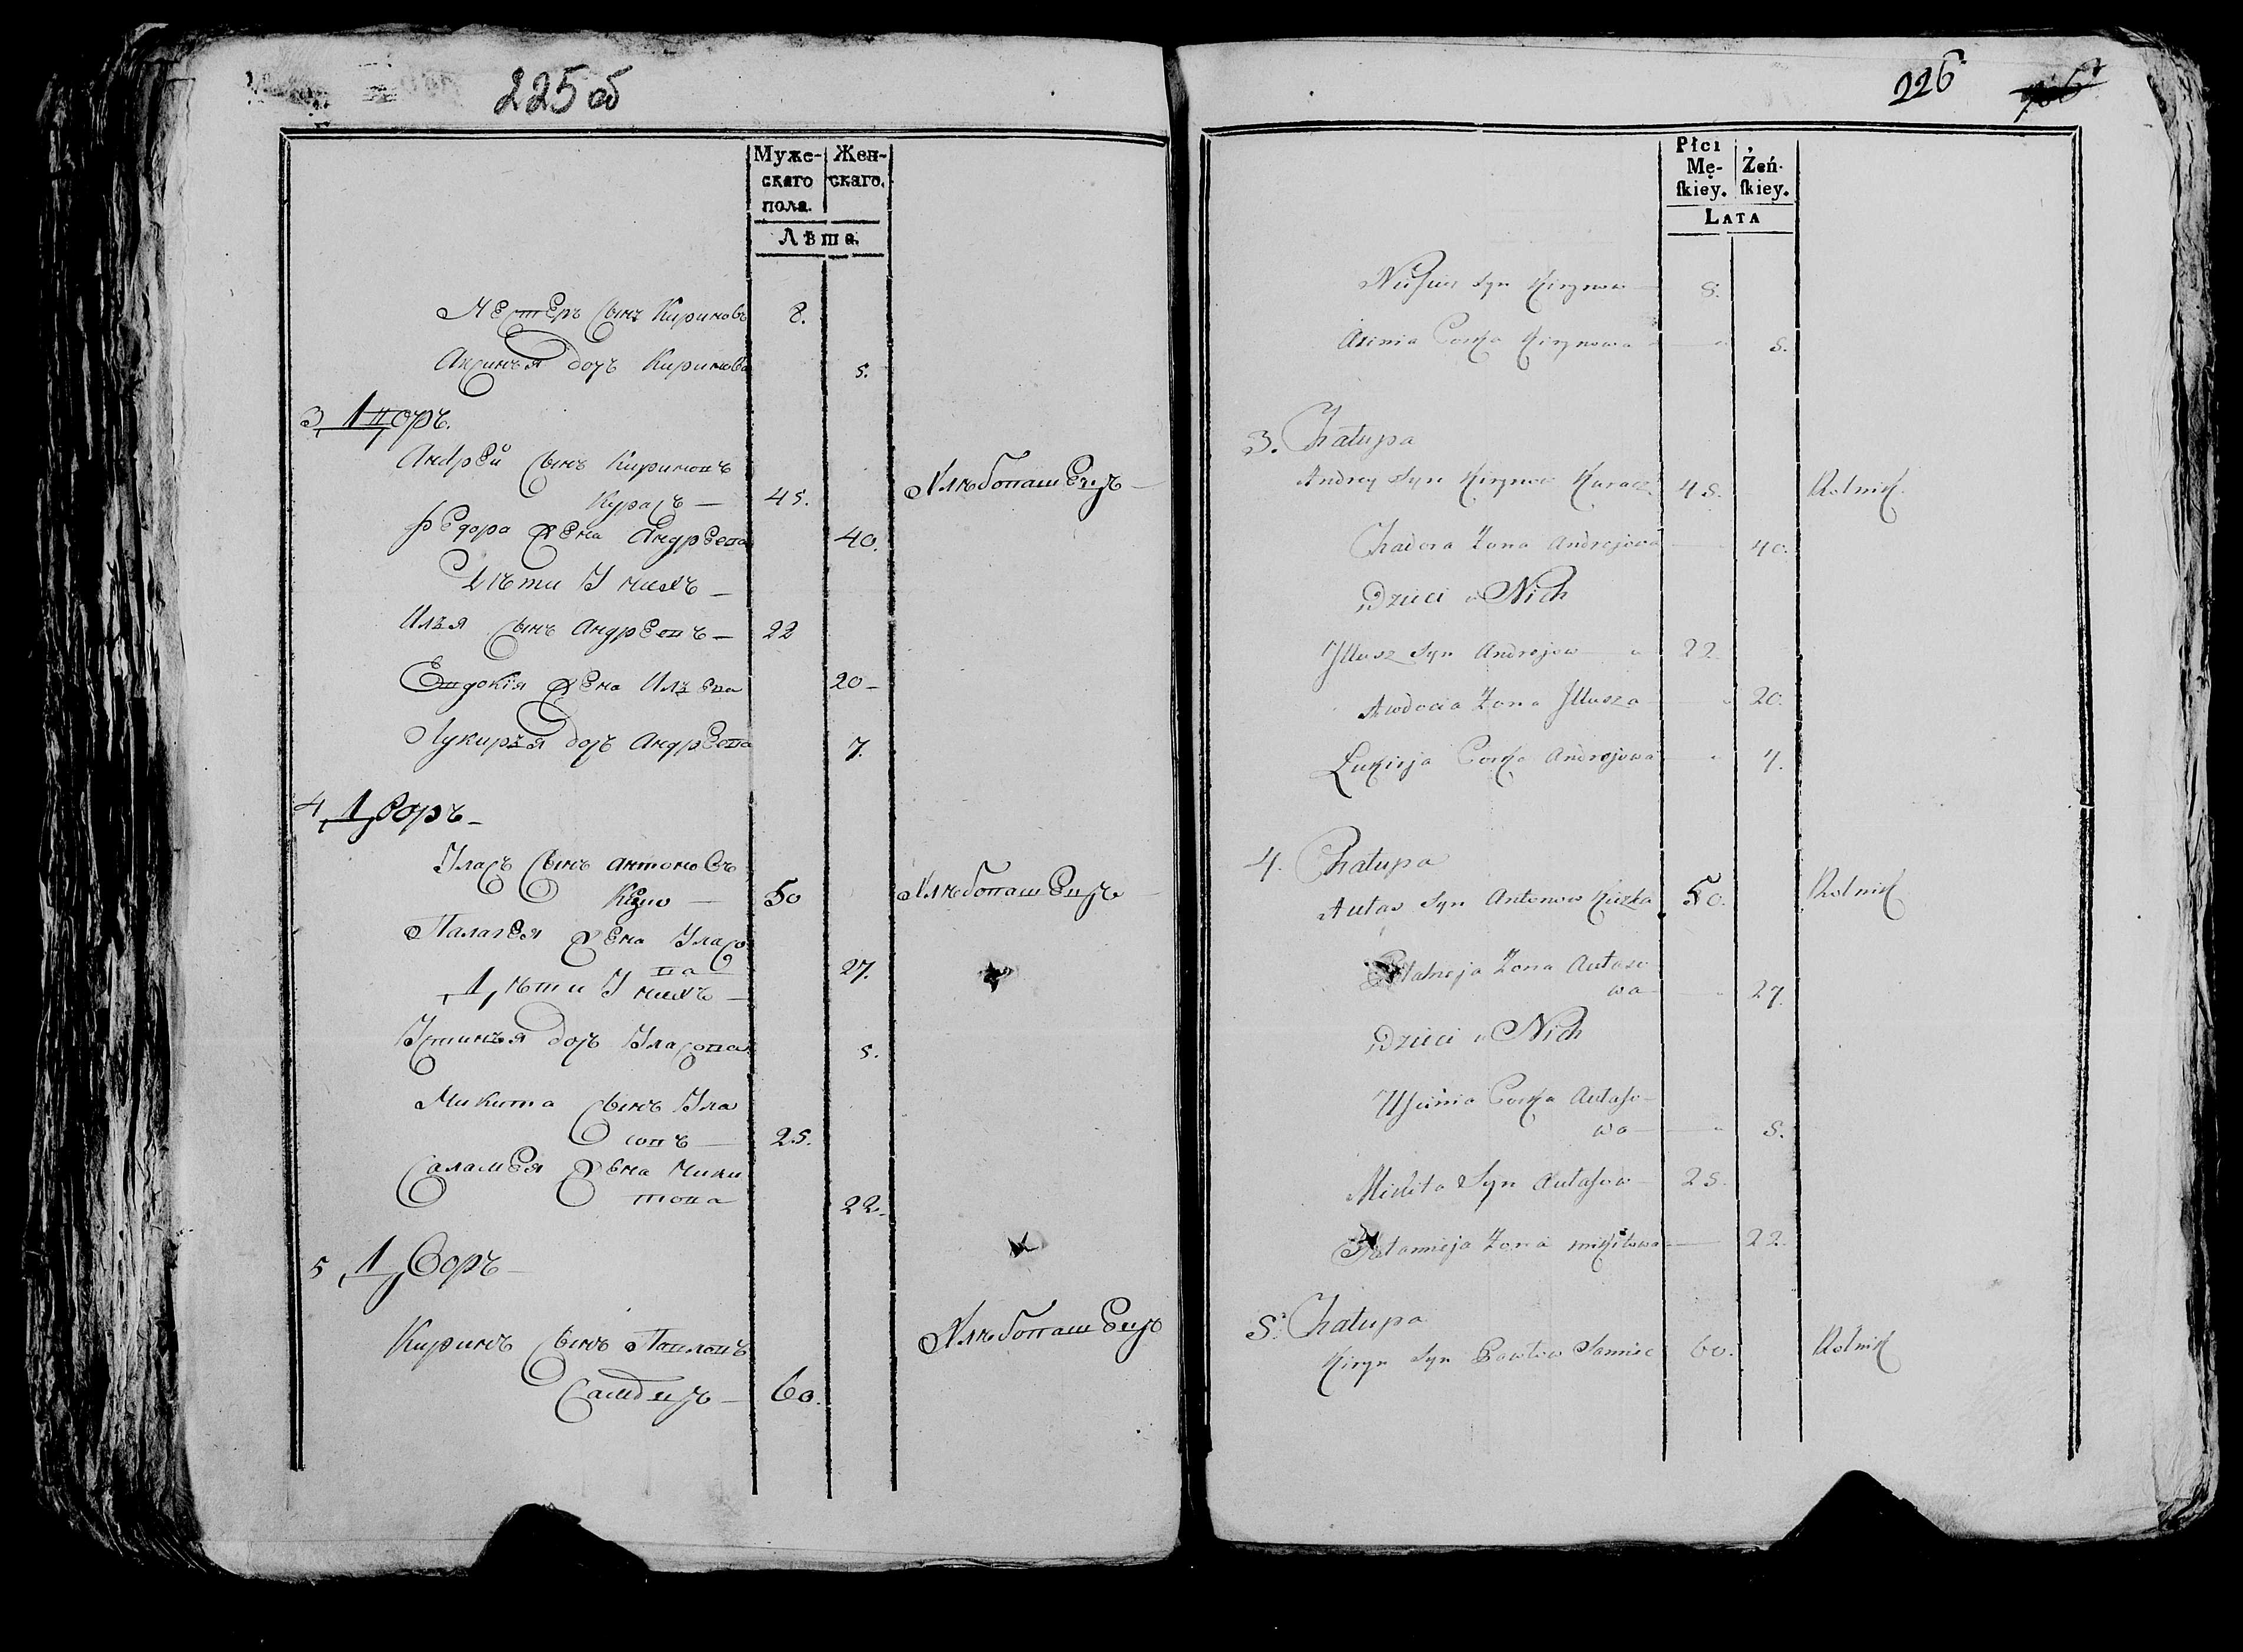 225об
Муже-
скаго
пола.
Жен-
скаго.
Лѣта.
Нестеръ сынъ Кириновъ 8.
Аксинья дочь Киринова 5.
3 Дворъ.
Андрей сынъ Кириновъ
Курасъ — 45. Хлѣбопашецъ —
Федора жена Андреева 40.
Дѣти У нихъ —
Илья сынъ Андреевъ — 22
Евдокія жена Ильева 20 —
Лукирья дочь Андреева 7.
4 Дворъ —
Уласъ сынъ Антоновъ
— 50 Хлѣбопашецъ —
Палагея жена Уласо
ва 27.
Дѣти У нихъ —
Устинья дочь Уласова 5.
Микита сынъ Ула
совъ — 25.
Саламея жена Мики
това 22.
5 Дворъ —
Киринъ сынъ Павловъ Хлѣбопашецъ
— 60.
226
Płci
Mę-
ſkiey.
Żeń-
ſkiey.
LATA
syn Kirynow 8.
Axinia Corka Kirynowa 5.
3. Chałupa
Andrey syn Kirynow 45. Rolnik
Chadora Żona Andrejowa 40.
Dzieci u Nich
Illusz syn Andrejow 22.
Awdocia Żona Illusza 20.
Łukirja Corka Andrejowa 7.
4. Chałupa
Aułas syn Antonow 50. Rolnik
Żona Aułaso
wa 27.
Dzieci u Nich
Uscinia Corka Aułaso-
wa 5.
Mikita Syn Aułasow 25.
Żona mikitowa 22.
5. Chałupa
Kiryn syn Pawłow 60. Rolnik